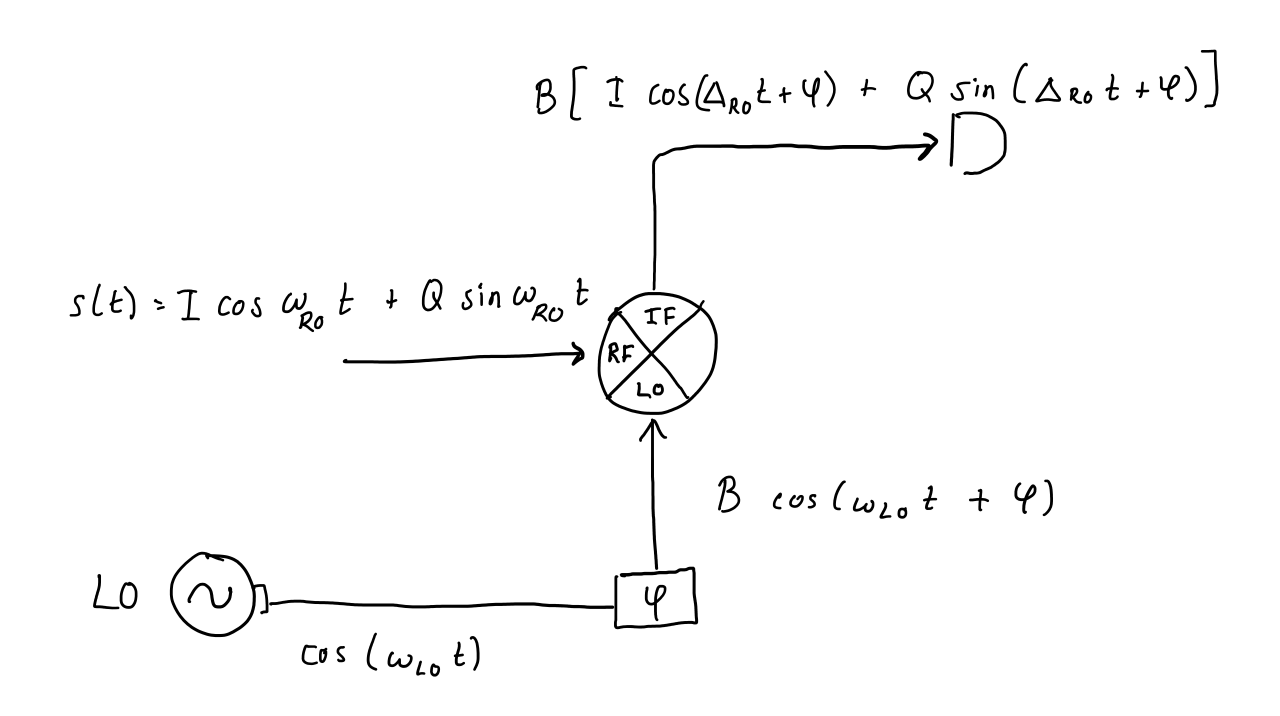 B[ I cos(Δ_RO t + φ) + Q sin (Δ_RO t + φ)]
s(t) = I cos ω_RO t + Q sin ω_RO t
IF
RF
LO
B cos(ω_LO t + φ)
LO
φ
cos (ω_LO t)